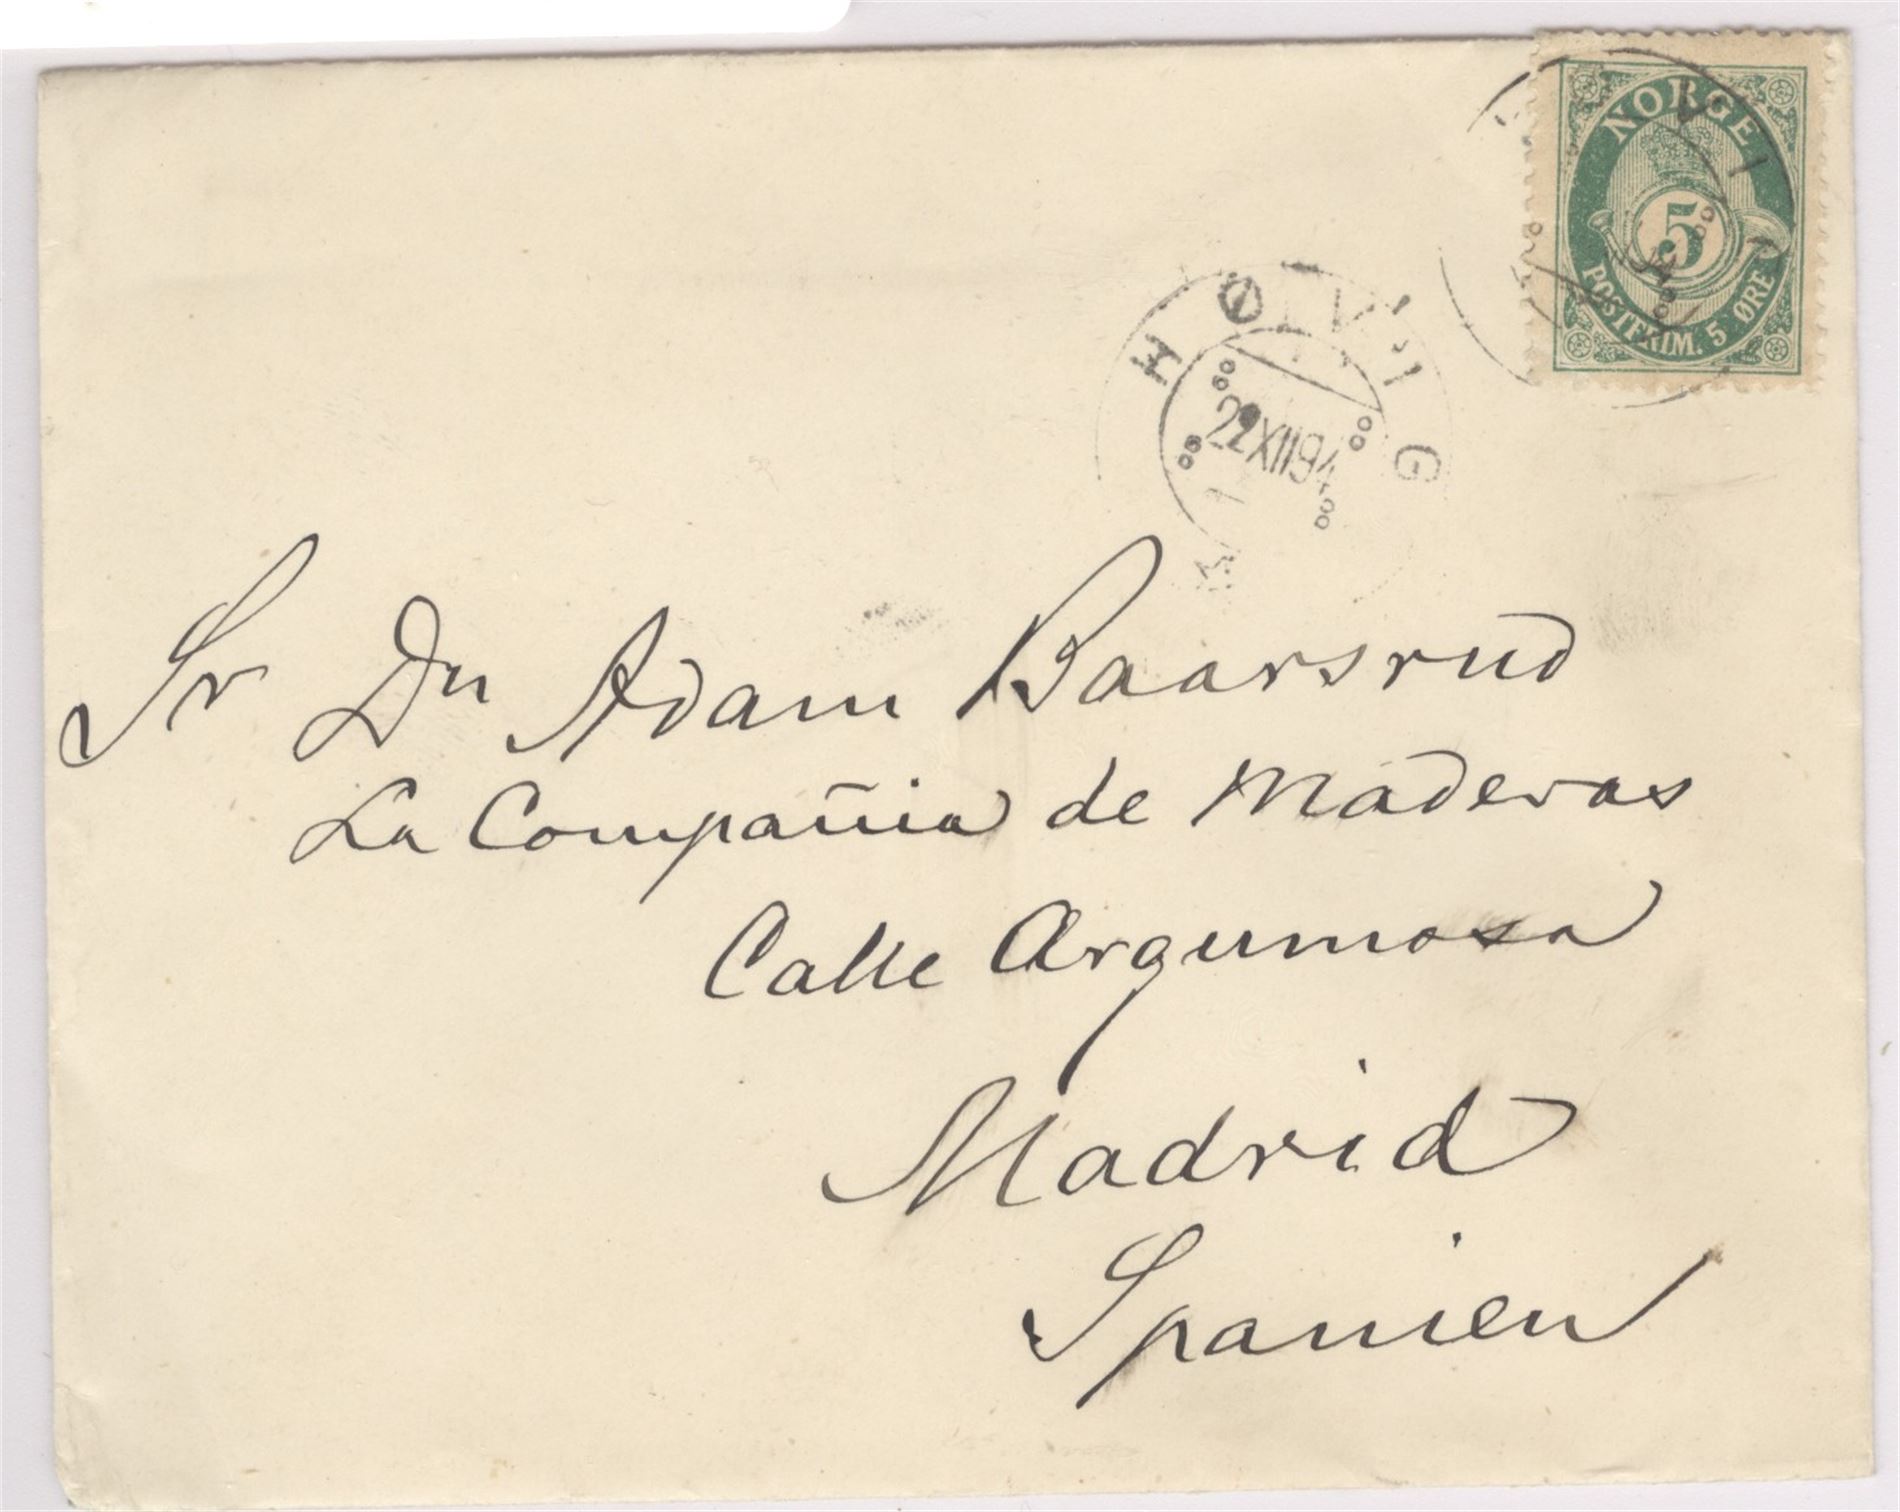 NORGE
5
POSTFRIM. 5 ØRE
HØVIG
22 XII 94
Sr Dn Adam Baarsrud
La Compañia de Maderas
Calle Argumosa
Madrid
Spanien